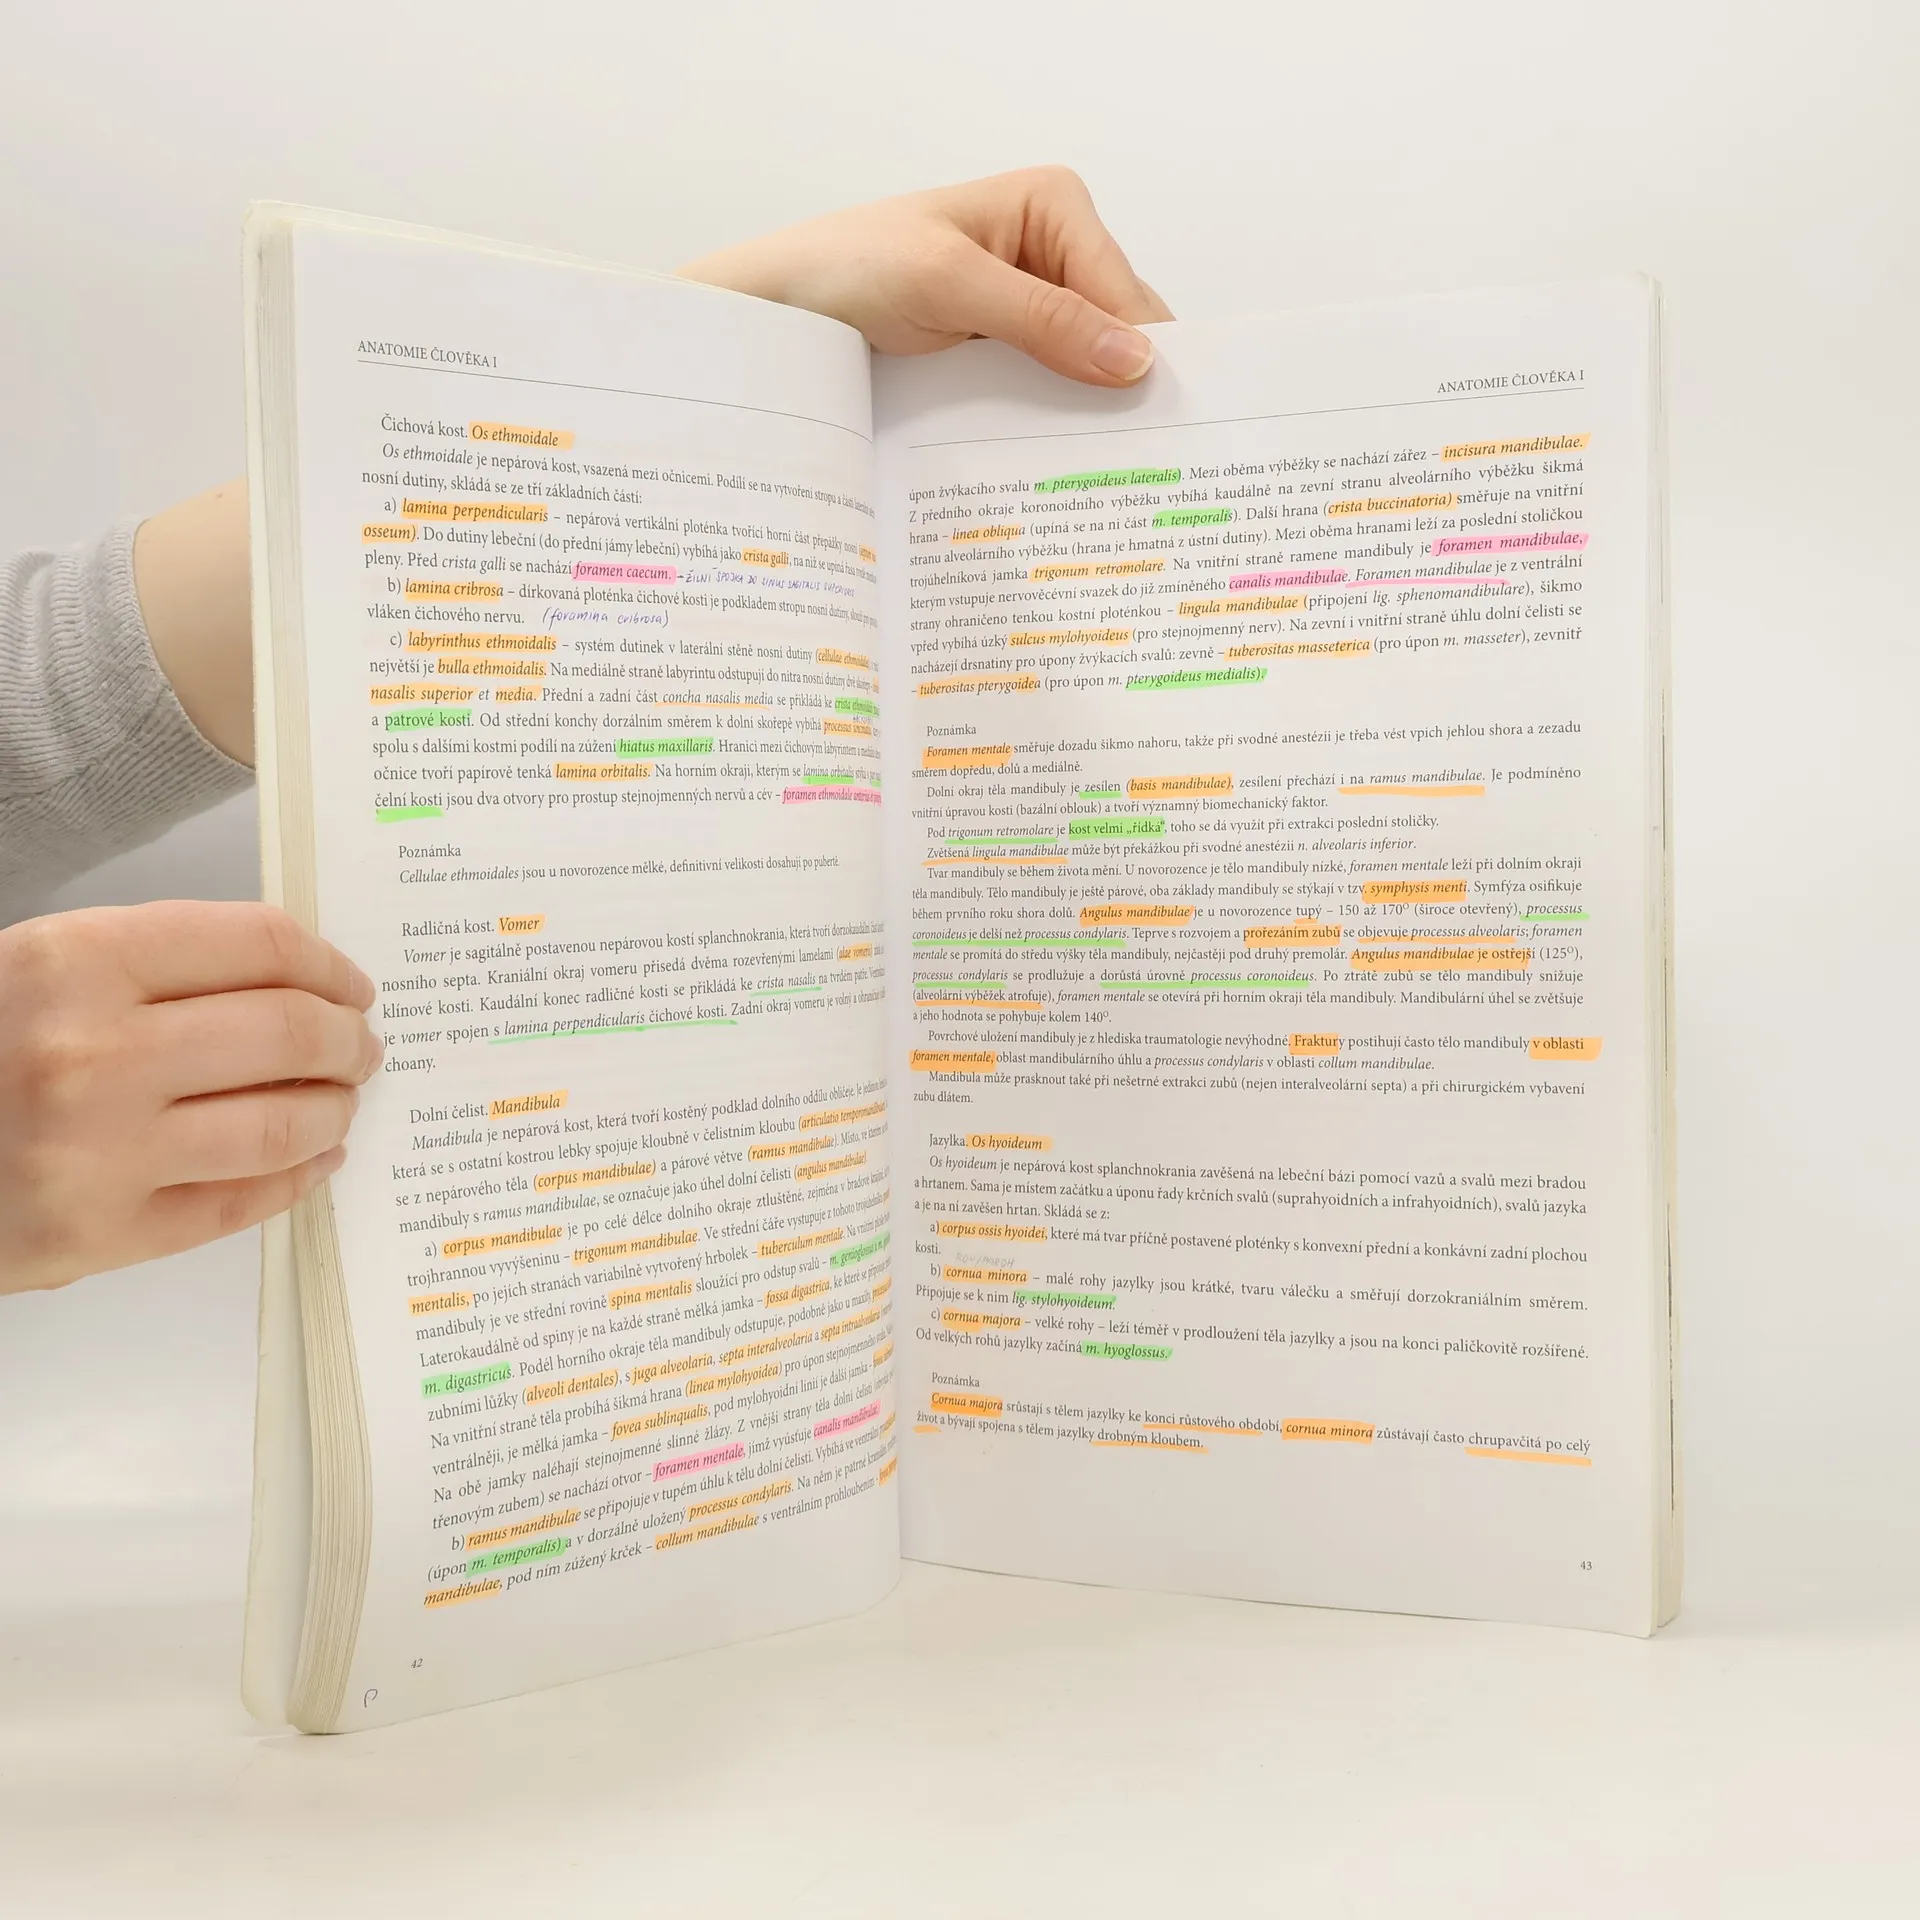 ANATOMIE ČLOVĚKA I
Čichová kost. Os ethmoidale
Os ethmoidale je nepárová kost, vsazená mezi očnicemi. Podílí se na vytvoření stropu a části
nosní dutiny, skládá se ze tří základních částí:
a) lamina perpendicularis – nepárová vertikální ploténka tvořící horní část přepážky nosní
osseum). Do dutiny lebeční (do přední jámy lebeční) vybíhá jako crista galli, na níž se upíná řasa
pleny. Před crista galli se nachází foramen caecum. – ŽILNÍ SPOJKA DO SINUS SAGITALIS
b) lamina cribrosa – dírkovaná ploténka čichové kosti je podkladem stropu nosní dutiny,
vláken čichového nervu. (foramina cribrosa)
c) labyrinthus ethmoidalis – systém dutinek v laterální stěně nosní dutiny (cellulae
největší je bulla ethmoidalis. Na mediálně straně labyrintu odstupují do nitra nosní dutiny dvě
nasalis superior et media. Přední a zadní část concha nasalis media se přikládá ke crista
a patrové kosti. Od střední konchy dorzálním směrem k dolní skořepě vybíhá processus
spolu s dalšími kostmi podílí na zúžení hiatus maxillaris. Hranici mezi čichovým labyrintem a
očnice tvoří papírově tenká lamina orbitalis. Na horním okraji, kterým se lamina orbitalis
čelní kosti jsou dva otvory pro prostup stejnojmenných nervů a cév – foramen ethmoidale
Poznámka
Cellulae ethmoidales jsou u novorozence mělké, definitivní velikosti dosahují po pubertě.
Radličná kost. Vomer
Vomer je sagitálně postavenou nepárovou kostí splanchnokrania, která tvoří dorzokaudální
nosního septa. Kraniální okraj vomeru přisedá dvěma rozevřenými lamelami (alae vomeris)
klínové kosti. Kaudální konec radličné kosti se přikládá ke crista nasalis na tvrdém patře.
je vomer spojen s lamina perpendicularis čichové kosti. Zadní okraj vomeru je volný a
choany.
Dolní čelist. Mandibula
Mandibula je nepárová kost, která tvoří kostěný podklad dolního oddílu obličeje. Je
která se s ostatní kostrou lebky spojuje kloubně v čelistním kloubu (articulatio
se z nepárového těla (corpus mandibulae) a párové větve (ramus mandibulae). Místo, ve kterém
mandibuly s ramus mandibulae, se označuje jako úhel dolní čelisti (angulus mandibulae)
a) corpus mandibulae je po celé délce dolního okraje ztluštěné, zejména v bradové
trojhrannou vyvýšeninu – trigonum mandibulae. Ve střední čáře vystupuje z tohoto
mentalis, po jejích stranách variabilně vytvořený hrbolek – tuberculum mentale. Na vnitřní
mandibuly je ve střední rovině spina mentalis sloužící pro odstup svalů – m. genioglossus
Laterokaudálně od spiny je na každé straně mělká jamka – fossa digastrica, ke které se připojuje
m. digastricus. Podél horního okraje těla mandibuly odstupuje, podobně jako u maxily,
zubními lůžky (alveoli dentales), s juga alveolaria, septa interalveolaria a septa intraalveolaria
Na vnitřní straně těla probíhá šikmá hrana (linea mylohyoidea) pro úpon stejnojmenného svalu.
ventrálněji, je mělká jamka – fovea sublinqualis, pod mylohyoidní linií je další jamka –
Na obě jamky naléhají stejnojmenné slinné žlázy. Z vnější strany těla dolní čelisti
třenovým zubem) se nachází otvor – foramen mentale, jímž vyúsťuje canalis mandibulae.
b) ramus mandibulae se připojuje v tupém úhlu k tělu dolní čelisti. Vybíhá ve ventrální
(úpon m. temporalis) a v dorzálně uložený processus condylaris. Na něm je patrné
mandibulae, pod ním zúžený krček – collum mandibulae s ventrálním prohloubením –
42
P
ANATOMIE ČLOVĚKA I
úpon žvýkacího svalu m. pterygoideus lateralis). Mezi oběma výběžky se nachází zářez – incisura mandibulae.
Z předního okraje koronoidního výběžku vybíhá kaudálně na zevní stranu alveolárního výběžku šikmá
hrana – linea obliqua (upíná se na ni část m. temporalis). Další hrana (crista buccinatoria) směřuje na vnitřní
stranu alveolárního výběžku (hrana je hmatná z ústní dutiny). Mezi oběma hranami leží za poslední stoličkou
trojúhelníková jamka trigonum retromolare. Na vnitřní straně ramene mandibuly je foramen mandibulae,
kterým vstupuje nervověcévní svazek do již zmíněného canalis mandibulae. Foramen mandibulae je z ventrální
strany ohraničeno tenkou kostní ploténkou – lingula mandibulae (připojení lig. sphenomandibulare), šikmo
vpřed vybíhá úzký sulcus mylohyoideus (pro stejnojmenný nerv). Na zevní i vnitřní straně úhlu dolní čelisti se
nacházejí drsnatiny pro úpony žvýkacích svalů: zevně – tuberositas masseterica (pro úpon m. masseter), zevnitř
– tuberositas pterygoidea (pro úpon m. pterygoideus medialis),
Poznámka
Foramen mentale směřuje dozadu šikmo nahoru, takže při svodné anestézii je třeba vést vpich jehlou shora a zezadu
směrem dopředu, dolů a mediálně.
Dolní okraj těla mandibuly je zesílen (basis mandibulae), zesílení přechází i na ramus mandibulae. Je podmíněno
vnitřní úpravou kosti (bazální oblouk) a tvoří významný biomechanický faktor.
Pod trigonum retromolare je kost velmi „řídká", toho se dá využít při extrakci poslední stoličky.
Zvětšená lingula mandibulae může být překážkou při svodné anestézii n. alveolaris inferior.
Tvar mandibuly se během života mění. U novorozence je tělo mandibuly nízké, foramen mentale leží při dolním okraji
těla mandibuly. Tělo mandibuly je ještě párové, oba základy mandibuly se stýkají v tzv. symphysis menti. Symfýza osifikuje
během prvního roku shora dolů. Angulus mandibulae je u novorozence tupý – 150 až 170⁰ (široce otevřený), processus
coronoideus je delší než processus condylaris. Teprve s rozvojem a prořezáním zubů se objevuje processus alveolaris; foramen
mentale se promítá do středu výšky těla mandibuly, nejčastěji pod druhý premolár. Angulus mandibulae je ostřejší (125⁰),
processus condylaris se prodlužuje a dorůstá úrovně processus coronoideus. Po ztrátě zubů se tělo mandibuly snižuje
(alveolární výběžek atrofuje), foramen mentale se otevírá při horním okraji těla mandibuly. Mandibulární úhel se zvětšuje
a jeho hodnota se pohybuje kolem 140⁰.
Povrchové uložení mandibuly je z hlediska traumatologie nevýhodné. Fraktury postihují často tělo mandibuly v oblasti
foramen mentale, oblast mandibulárního úhlu a processus condylaris v oblasti collum mandibulae.
Mandibula může prasknout také při nešetrné extrakci zubů (nejen interalveolární septa) a při chirurgickém vybavení
zubu dlátem.
Jazylka. Os hyoideum
Os hyoideum je nepárová kost splanchnokrania zavěšená na lebeční bázi pomocí vazů a svalů mezi bradou
a hrtanem. Sama je místem začátku a úponu řady krčních svalů (suprahyoidních a infrahyoidních), svalů jazyka
a je na ní zavěšen hrtan. Skládá se z:
a) corpus ossis hyoidei, které má tvar příčně postavené ploténky s konvexní přední a konkávní zadní plochou
kosti.
b) cornua minora – malé rohy jazylky jsou krátké, tvaru válečku a směřují dorzokraniálním směrem.
Připojuje se k nim lig. stylohyoideum.
c) cornua majora – velké rohy – leží téměř v prodloužení těla jazylky a jsou na konci paličkovitě rozšířené.
Od velkých rohů jazylky začíná m. hyoglossus.
Poznámka
Cornua majora srůstají s tělem jazylky ke konci růstového období, cornua minora zůstávají často chrupavčitá po celý
život a bývají spojena s tělem jazylky drobným kloubem.
43